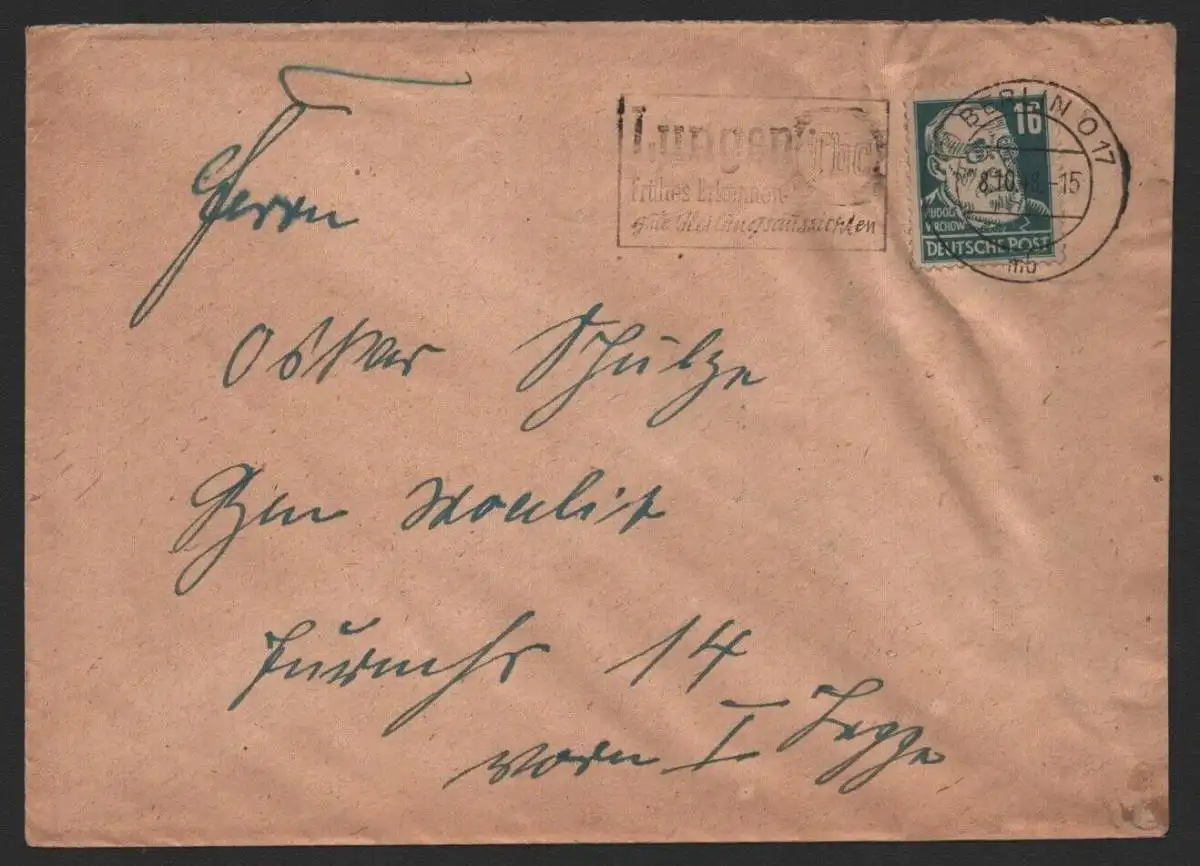 Lungen Tbc
frühes Erkennen
gute Heilungsaussichten
BERLIN O 17
8.10.48.-15
mb
16
RUDOLF
VIRCHOW
DEUTSCHE POST
Herrn
Oskar Schulze
Bln Moabit
14
vorn I Treppe